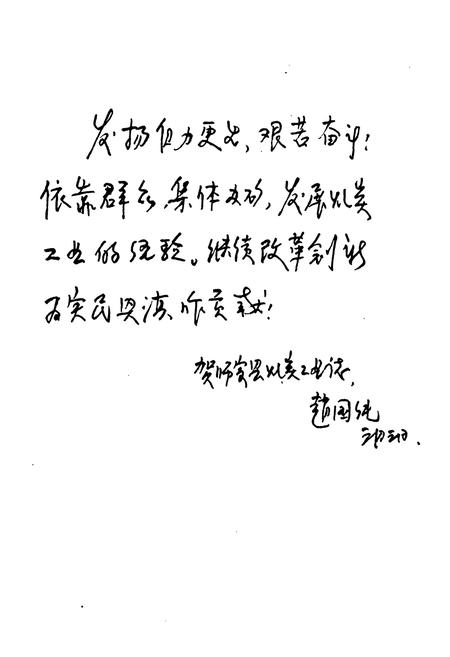 发扬自力更生，艰苦奋斗！
依靠群众，集体办矿，发展煤炭
工业的经验。继续改革创新
为富民兴滇作贡献！
贺师宗县煤炭工业志，
赵国纯